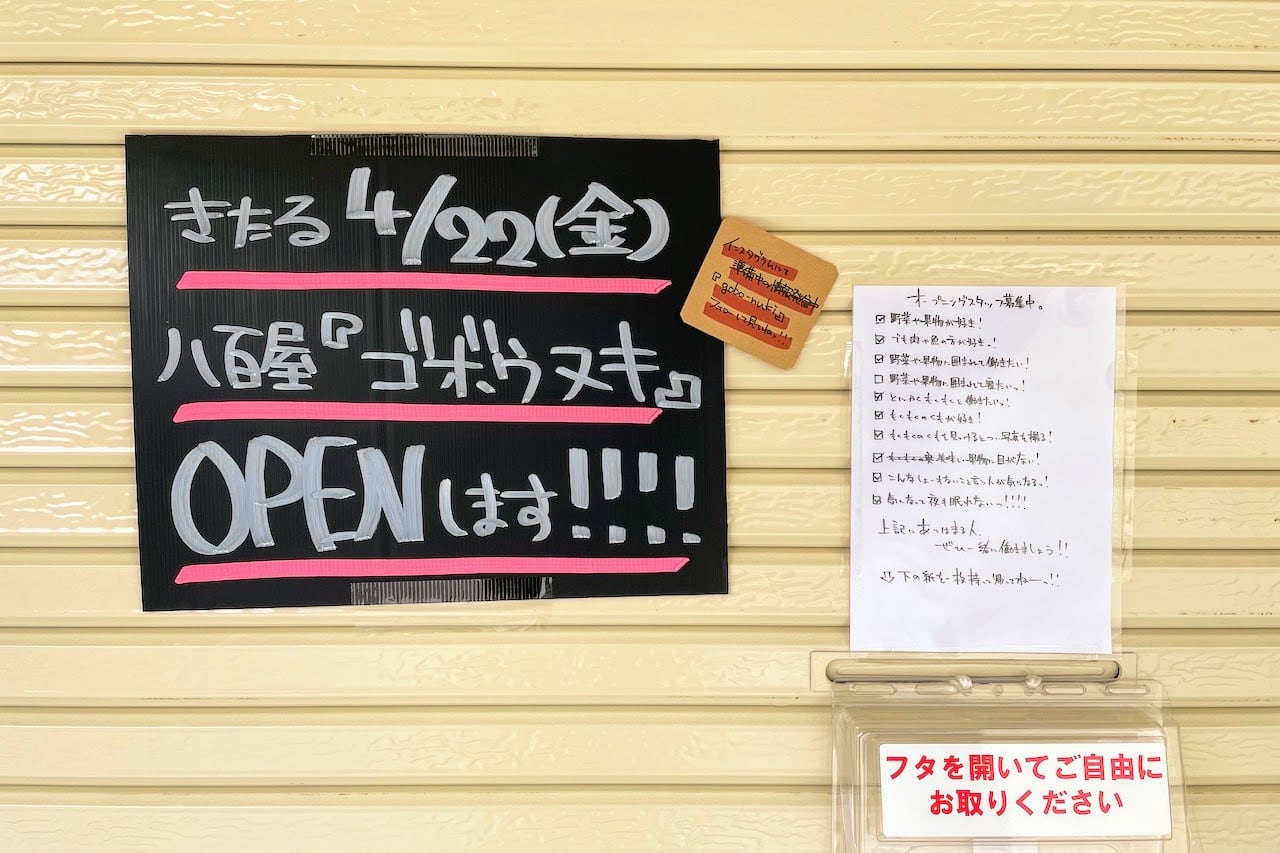 きたる 4/22(金)
八百屋『ゴボウヌキ』
OPENします!!!!
インスタグラムにて
準備中の情報発信中
『gobo-nuki』
フォローして見てねッ!!!
オープニングスタッフ募集中。
☑ 野菜や果物が好き!
☑ でも肉や魚の方が好きっ!
☑ 野菜や果物に囲まれて働きたい!
☐ 野菜や果物に囲まれて寝たいっ!
☑ とにかくもくもくと働きたいっ!
☑ もくもくのくもが好き!
☑ もくもくのくもを見つけるとつい写真を撮る!
☑ 美味しい果物に目がない!
☑ こんなしょーもないこと言う人が気になるっ!
☑ 気になって夜も眠れないっ!!!!
上記にあてはまる人
ぜひ一緒に働きましょう!!
下の紙を一枚持って帰ってねーっ!!
フタを開いてご自由に
お取りください